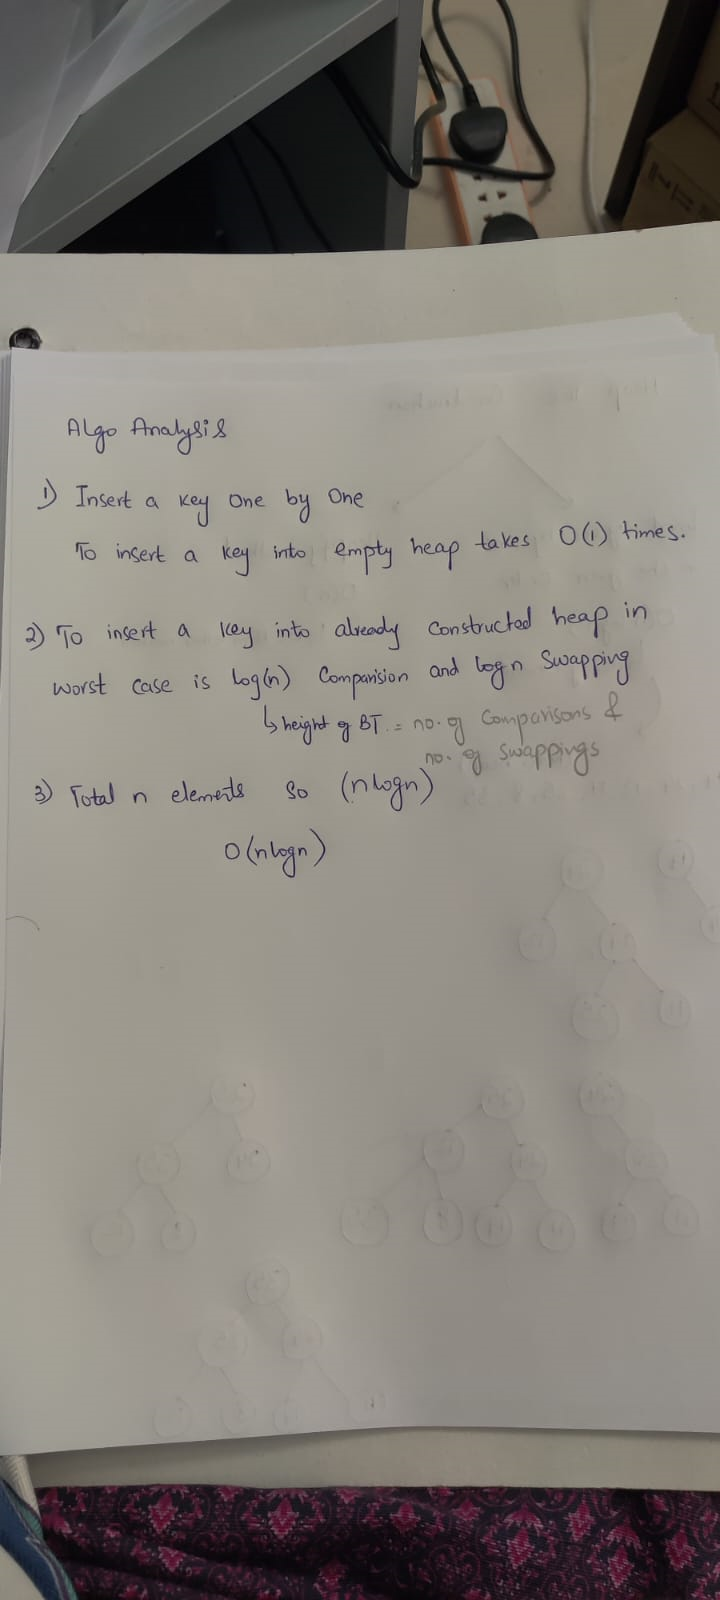 Algo Analysis
1) Insert a key one by one
To insert a key into empty heap takes O(1) times.
2) To insert a key into already constructed heap in
worst case is log(n) Comparision and logn Swapping
↳ height of BT = no. of Comparisons &
no. of swappings
3) Total n elements so (nlogn)
O(nlogn)